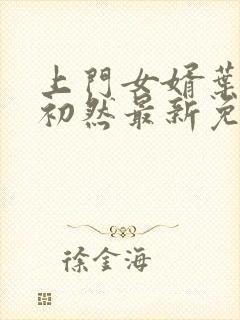 上門女婿葉
初然最新免
徐金海